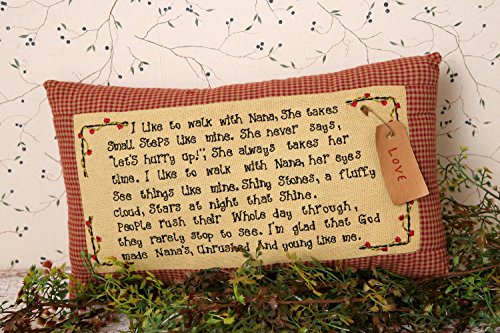 I like to walk with Nana, She takes
Small Steps like mine. She never says,
"Let's hurry up!", She always takes her
time. I like to walk with Nana, her eyes
See things like mine. Shiny Stones, a fluffy
cloud, Stars at night that Shine.
People rush their Whole day through,
they rarely stop to see. I'm glad that God
made Nana's, Unrushed And young like me.
LOVE